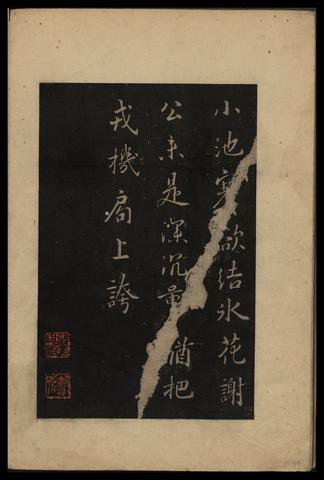 小池寒欲結氷花謝
公未是深沉量猶把
戎機局上誇